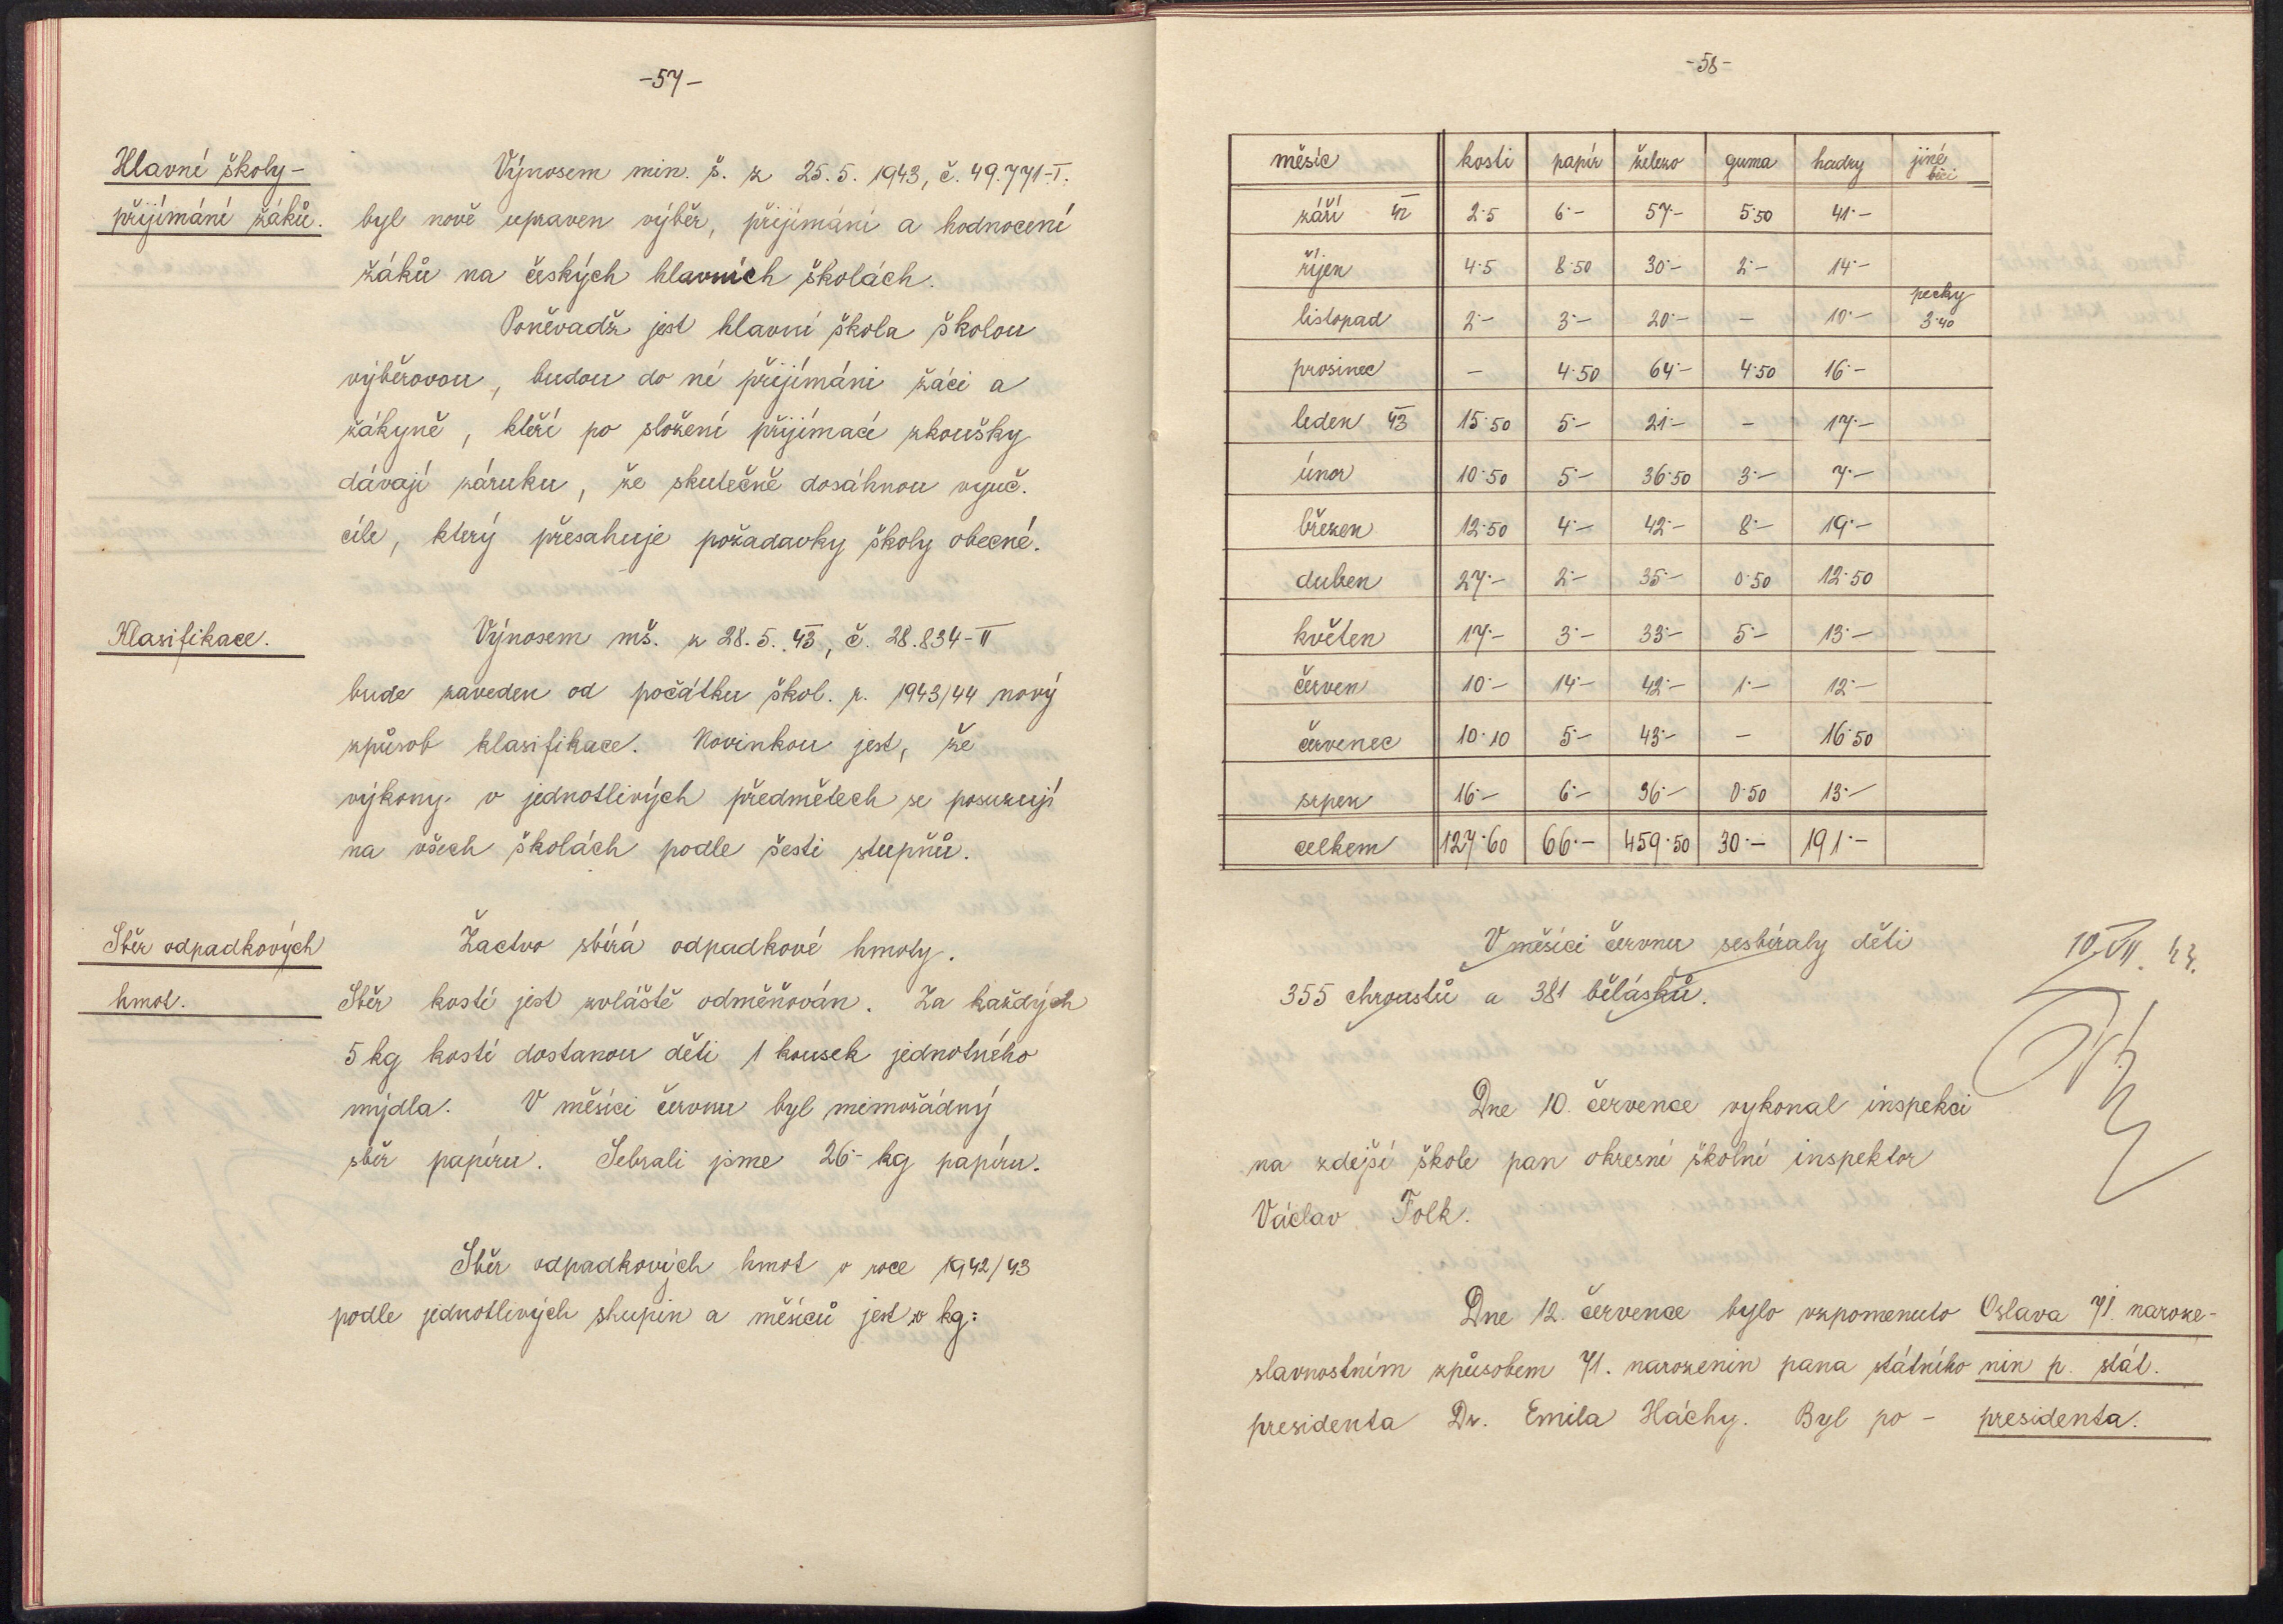 -57-
Hlavní školy-
přijímání žáků.
Výnosem min. š. z 25.5. 1943, č. 49.771-I.
byl nově upraven výběr, přijímání a hodnocení
žáků na českých hlavních školách.
Poněvadž jest hlavní škola školou
výběrovou, budou do ní přijímáni žáci a
žákyně, kteří po složení přijímací zkoušky
dávají záruku, že skutečně dosáhnou vyuč.
cíle, který přesahuje požadavky školy obecné.
Klasifikace.
Výnosem mš. z 28.5. 43, č. 28.834-II
bude zaveden od počátku škol. r. 1943/44 nový
způsob klasifikace. Novinkou jest, že
výkony v jednotlivých předmětech se posuzují
na všech školách podle šesti stupňů.
Sběr odpadkových
hmot.
Žactvo sbírá odpadkové hmoty.
Sběr kostí jest zvláště odměňován. Za každých
5 kg kostí dostanou děti 1 kousek jednotného
mýdla. V měsíci červnu byl mimořádný
sběr papíru. Sebrali jsme 26·- kg papíru.
Sběr odpadkových hmot v roce 1942/43
podle jednotlivých skupin a měsíců jest v kg:
-58-
měsíc kosti papír železo guma hadry jiné věci
září 42 2·5 6·- 57·- 5·50 41·-
říjen 4·5 8·50 30·- 2·- 14·-
listopad 2·- 3·- 20·- - 10·- pecky 3·40
prosinec - 4·50 64·- 4·50 16·-
leden 43 15·50 5·- 21·- - 17·-
únor 10·50 5·- 36·50 3·- 7·-
březen 12·50 4·- 42·- 8·- 19·-
duben 27·- 2·- 35·- 0·50 12·50
květen 17·- 3·- 33·- 5·- 13·-
červen 10·- 14·- 42·- 1·- 12·-
červenec 10·10 5·- 43·- - 16·50
srpen 16·- 6·- 36·- 0·50 13·-
celkem 127·60 66·- 459·50 30·- 191·-
V měsíci červnu sesbíraly děti
355 chroustů a 381 bělásků.
10./VII. 43.
Dne 10. července vykonal inspekci
na zdejší škole pan okresní školní inspektor
Václav Folk.
Dne 12. července bylo vzpomenuto
slavnostním způsobem 71. narozenin pana státního
presidenta Dr. Emila Háchy. Byl po-
Oslava 71. naroze-
nin p. stát.
presidenta.